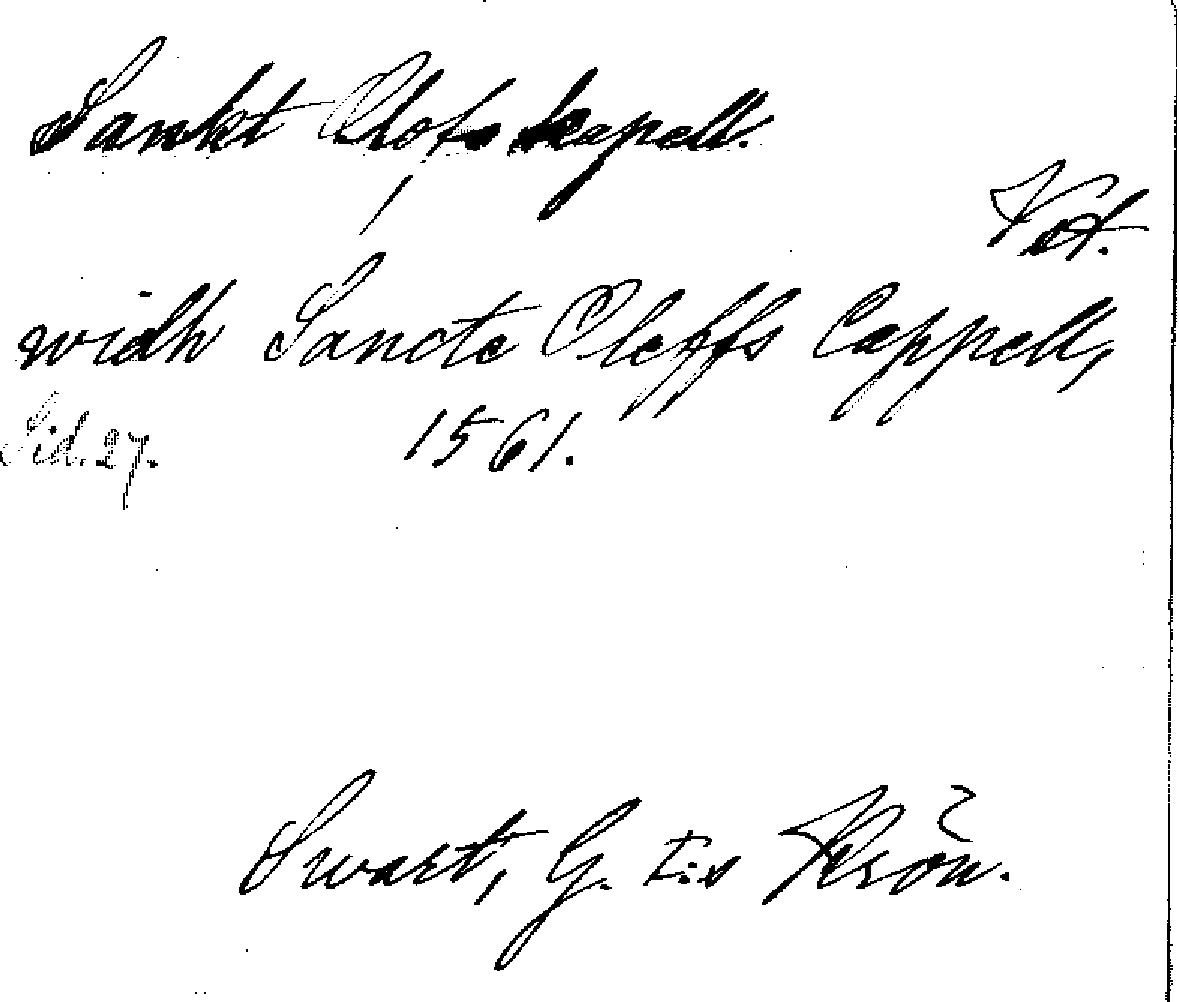 Sankt Olofs kapell.
Vst.
widh Sancte Oleffs Cappell,
Sid. 27. 1561.
Swart, G. I:s Krön.